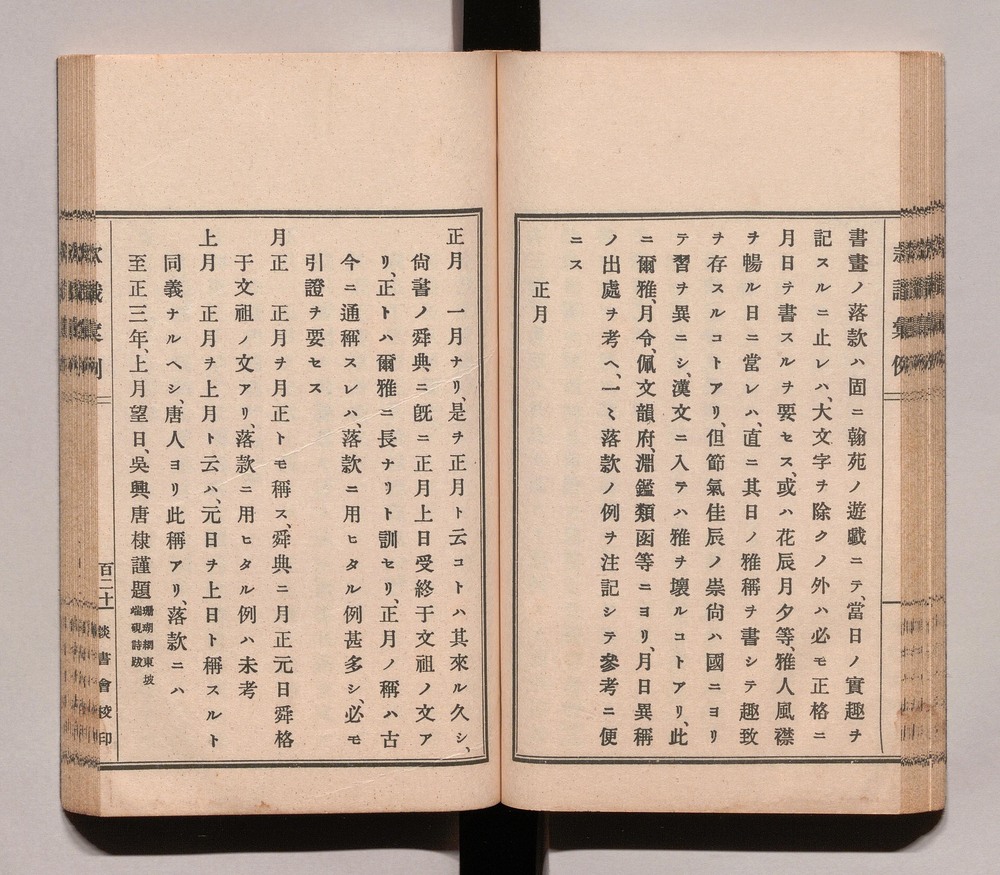 書畫ノ落款ハ固ニ翰苑ノ遊戲ニテ、當日ノ實趣ヲ
記スルニ止レハ、大文字ヲ除クノ外ハ必モ正格ニ
月日ヲ書スルヲ要セス、或ハ花辰月夕等、雅人風襟
ヲ暢ル日ニ當レハ、直ニ其日ノ雅稱ヲ書シテ趣致
ヲ存スルコトアリ、但節氣佳辰ノ崇尙ハ國ニヨリ
テ習ヲ異ニシ、漢文ニ入テハ雅ヲ壞ルコトアリ、此
ニ爾雅、月令、佩文韻府、淵鑑類函等ニヨリ、月日異稱
ノ出處ヲ考ヘ、一〻落款ノ例ヲ注記シテ參考ニ便
ニス
正月
正月　一月ナリ、是ヲ正月ト云コトハ其來ル久シ、
尙書ノ舜典ニ既ニ正月上日受終于文祖ノ文ア
リ、正トハ爾雅ニ長ナリト訓セリ、正月ノ稱ハ古
今ニ通稱スレハ、落款ニ用ヒタル例甚多シ、必モ
引證ヲ要セス
月正　正月ヲ月正トモ稱ス、舜典ニ月正元日舜格
于文祖ノ文アリ、落款ニ用ヒタル例ハ未考
上月　正月ヲ上月ト云ハ、元日ヲ上日ト稱スルト
同義ナルヘシ、唐人ヨリ此稱アリ、落款ニハ
至正三年、上月望日、吳興唐棣謹題 珊瑚網東坡端硯詩跋
百二十一
談書會校印